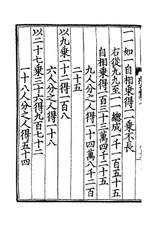 一一如一自相乘得一一乘不長
右從九九至一一總成一千一百五十五
自相乘得一百三十三萬四千二十五
九人分之人得一十四萬八千二百
二十五
以九乘一十二得一百八
六人分之人得一十八
以二十七乘三十六得九百七十二
一十八人分之人得五十四